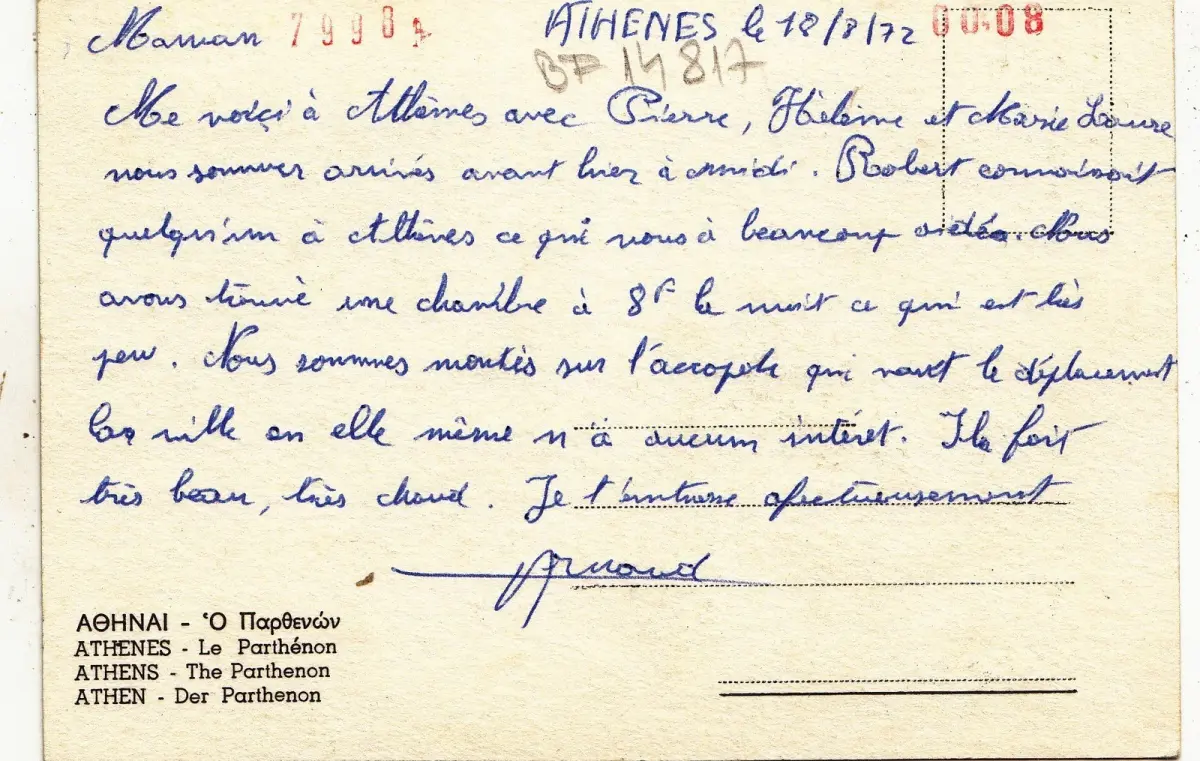 Maman 79984 ATHENES le 18/8/72 00.08
BF 14 817
Me voiçi à Athènes avec Pierre, Hélène et Marie Laure
nous sommes arrivés avant hier à midi. Robert connaissait
quelqu'un à Athènes ce qui nous à beaucoup aidéa. Nous
avons trouvé une chambre à 8F la nuit ce qui est très
peu. Nous sommes montés sur l'accropole qui vaut le déplacement
La ville en elle même n'a aucum intéret. Il fait
très beau, très chaud. Je t'embrasse afectueusement
Arnaud
ΑΘΗΝΑΙ - Ὁ Παρθενών
ATHENES - Le Parthénon
ATHENS - The Parthenon
ATHEN - Der Parthenon